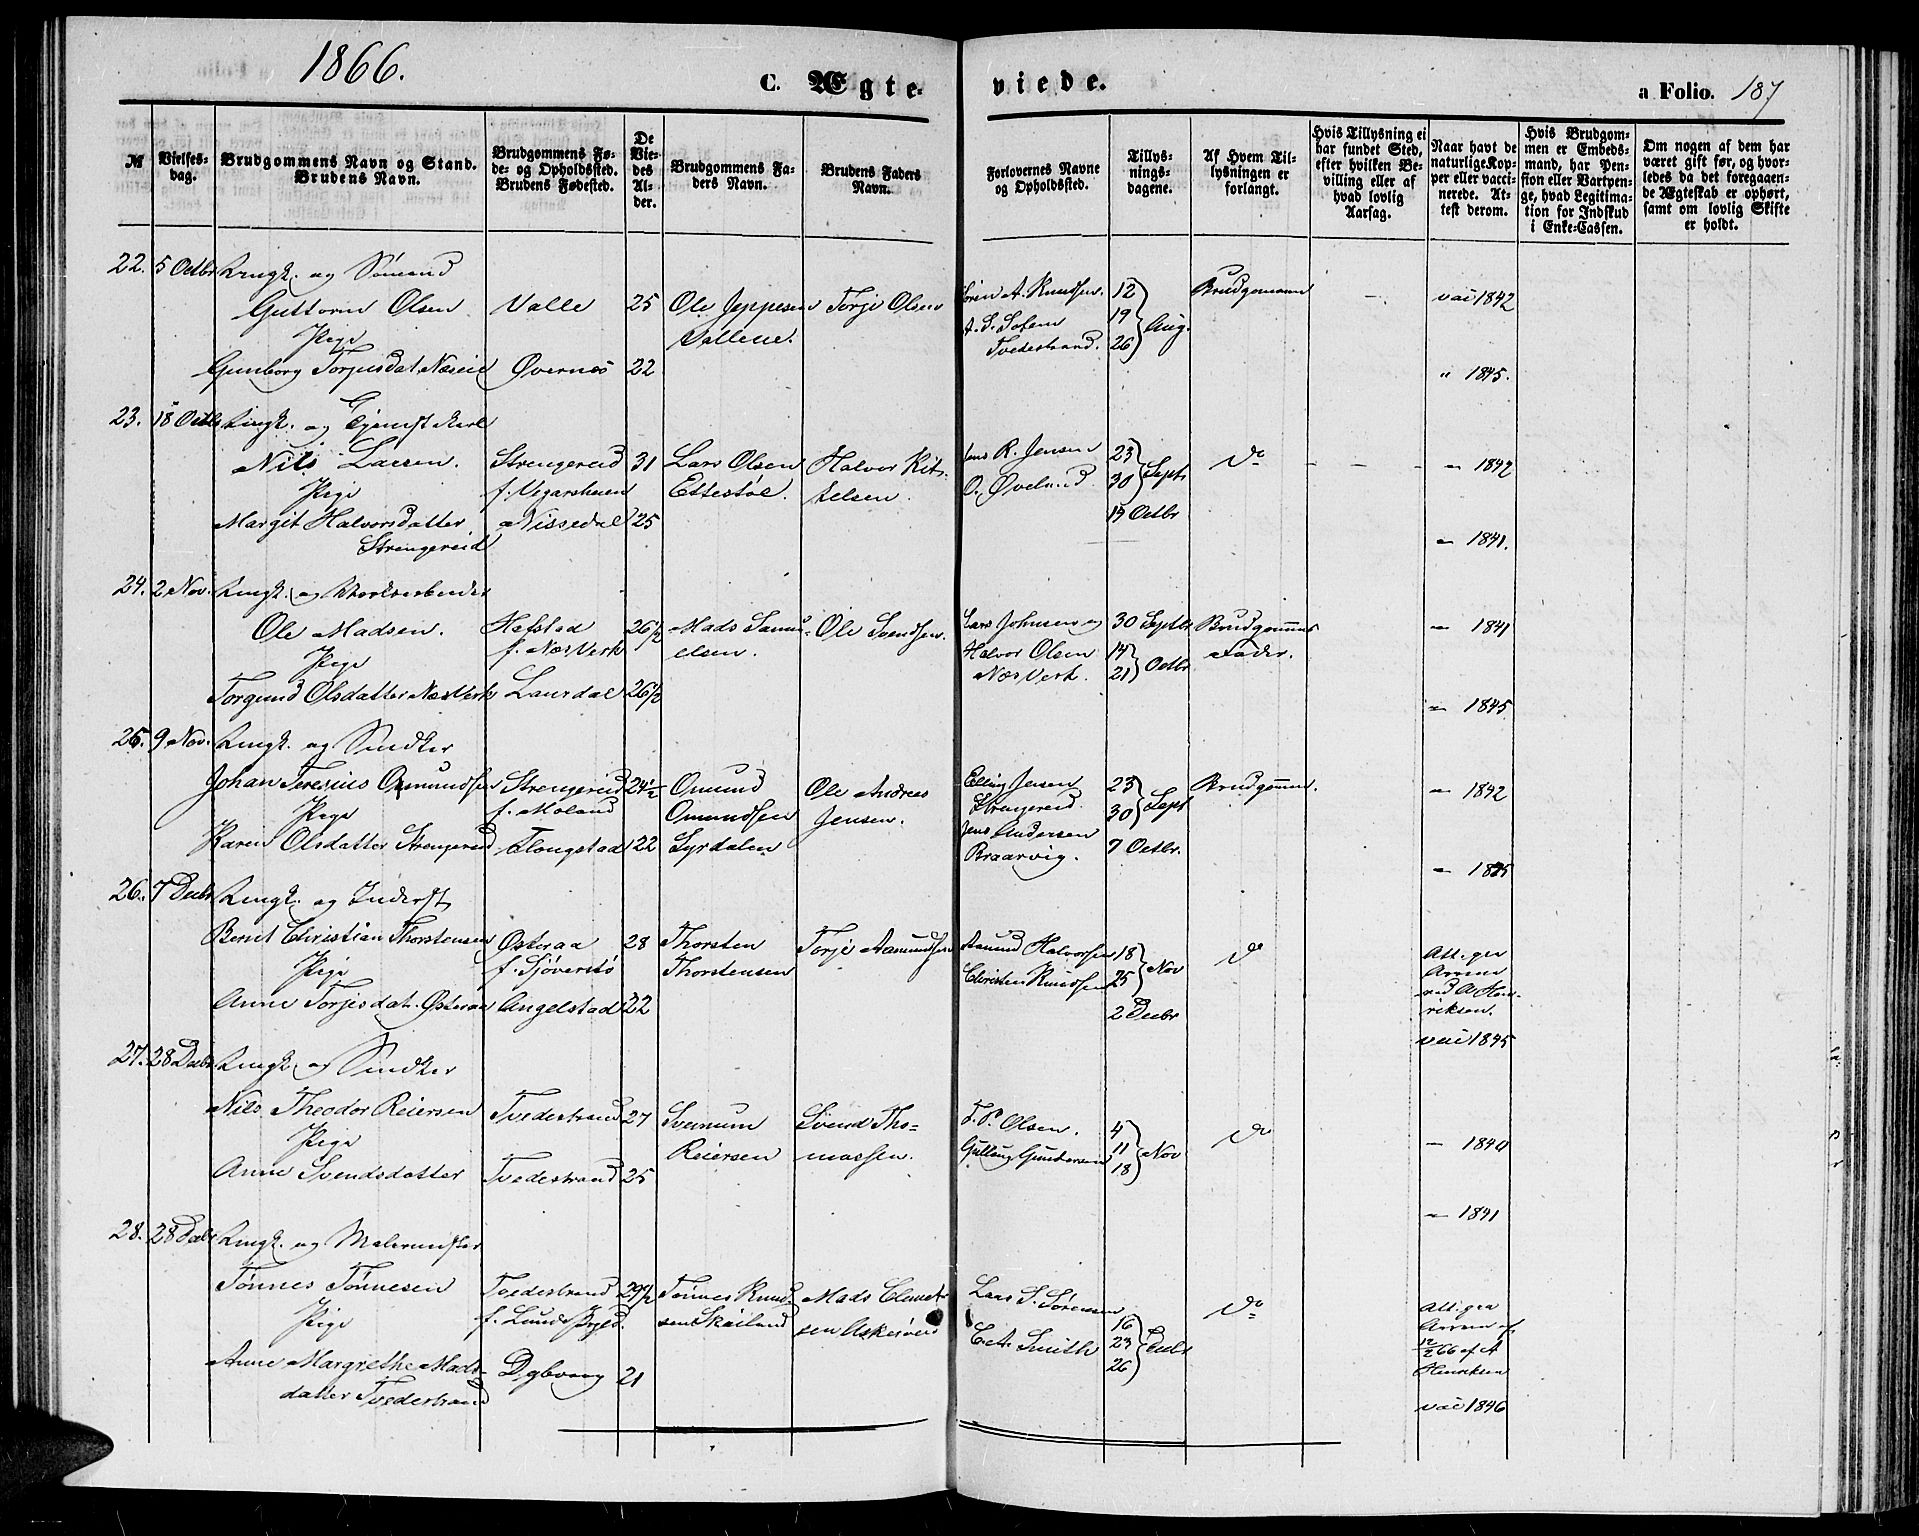 1866.
C. Ægte-
viede.
a Folio. 187
№
Vielses-
dag.
Brudgommens Navn og Stand.
Brudens Navn.
Brudgommens Fø-
de- og Opholdssted.
Brudens Fødested.
De
Vie-
des
Al-
der.
Brudgommens Fa-
ders Navn.
Brudens Faders
Navn.
Forlovernes Navne
og Opholdssted.
Tillys-
nings-
dagene.
Af Hvem Til-
lysningen er
forlangt.
Hvis Tillysning ei
har fundet Sted,
efter hvilken Be-
villing eller af
hvad lovlig
Aarsag.
Naar havt de
naturlige Kop-
per eller vacci-
nerede. At-
test derom.
Hvis Brudgom-
men er Embeds-
mand, har Pen-
sion eller Vartpen-
ge, hvad Legitima-
tion for Indskud
i Enke-Cassen.
Om nogen af dem har
været gift før, og hvor-
ledes da det foregaaen-
de Ægteskab er ophørt,
samt om lovlig Skifte
er holdt.
22. 5 Octbr Ungk. og Sømand
Guttorm Olsen Valle 25 Ole Jeppesen Torje Olsen Søren A. Knudsen. 12 Brudgommen — vac 1842
Pige Vallene. A. S. Solem 19 Aug.
Tvedestrand. 26
Gunborg Torjusdat. Næseid Øvernes 22 " 1845.
23. 18 Octbr Ungk. og Tjenestkarl
Nils Larsen. Strengereid 31 Lars Olsen Halvor Kit- Jens R. Jensen 23 Do — — — 1842
Pige f. Vegarsheien Ettestøl. telsen. O. Øvelund 30 Sept
Margit Halvorsdatter Nissedal 25 14 Octbr
Strengereid — 1841.
24. 2 Nov. Ungk. og Værksarbeider
Ole Madsen. Hefstad 26½ Mads Samu- Ole Svendsen. Lars Johnsen og 30 Septbr Brudgommens — 1841
Pige f. NæsVerk elsen. Halvor Olsen 14 Octbr Fader.
NæsVerk. 21
Torgund Olsdatter NæsVerk Laurdal 26½ — 1845
25. 9 Nov. Ungk. og Snedker
Johan Teresius Osmundsen Strengereid 24½ Omund Ole Andreas Elling Jensen 23 Brudgommen. — 1842
Pige f. Moland Omundsen Jensen. Strengereid. 30 Sept
Karen Olsdatter Strengereid Flougstad 22 Lyrdalen Jens Andersen 7 Octbr.
Braarvig. — 1845
26. 7 Decbr Ungk. og Inderst
Bernt Christian Thorstensen Østeraa 28 Thorsten Torje Aamundsen Aamund Halvorsen 18 Do Att. gra
Pige f. Sjøverstø Thorstensen Christen Knudsen 25 Nov
ved A Hen-
Anne Torjisdat. Østeraa Angelstad 22 2 Decbr riksen.
vac 1845
27. 28 Decbr Ungk. og Snedker
Nils Theodor Reiersen Tvedestrand 27 Svenum Svend Tho- T. P. Olsen. 4 Do — 1840
Pige Reiersen massen. Gullaug Gundersen 11 Nov
Anne Svendsdatter Tvedestrand 25 18
— 1841
28. 28 Decbr Ungk. og Malermester
Tønnes Tønnesen Tvedestrand 29½ Tønnes Knud- Mads Clemet- Lars S. Sørensen 16 Do Att. gra
Pige f. Lunds Prgjd. sen Skailand sen Askerøen C. A. Smith 23 Decbr
26 12/2 66 af A
Anne Margrethe Mads- Dybvaag 21 Henriksen
datter Tvedestrand vac 1846